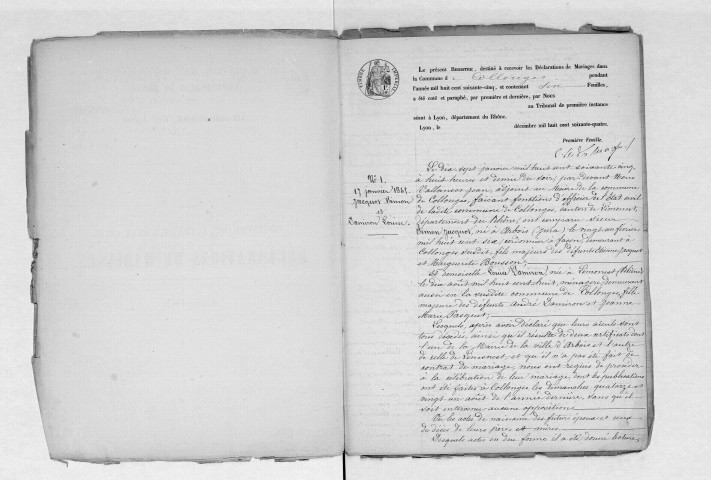 TIMBRE IMPERIAL
Le présent Registre, destiné à recevoir les Déclarations de Mariages dans
la Commune d e Collonges pendant
l'année mil huit cent soixante-cinq, et contenant Feuilles,
a été coté et paraphé, par première et dernière, par Nous
au Tribunal de première instance
séant à Lyon, département du Rhône.
Lyon, le décembre mil huit cent soixante-quatre.
Première Feuille.
N° 1.
17 janvier 1865
Jacquot Simon
et
Lamiron Louise
Le dix sept janvier mil huit cent soixante cinq
à huit heures et demie du soir, par devant Nous
Vallanson Jean, adjoint au Maire de la commune
de Collonges, faisant fonctions d'officier de l'état civil
de ladite commune de Collonges, canton de Limonest,
département du Rhône, ont comparu Sieur
Simon Jacquot, né à Arbois (Jura) le vingt au février
mil huit cent six, cordonnier à façon, demeurant à
Collonges susdit, fils majeur des défunts Etienne Jacquot
et Marguerite Bousson;
Et demoiselle Louise Lamiron, née à Limonest (Rhône)
le dix août mil huit cent huit, ménagère demeurant
aussi en la susdite commune de Collonges, fille
majeure des défunts André Lamiron et Jeanne
Marie Pasquet;
Lesquels, après avoir déclaré que leurs aïeuls sont
tous décédés, ainsi qu'il résulte de deux certificats dont
l'un de la Mairie de la ville d'Arbois et l'autre
de celle de Limonest, et qu'il n'a pas été fait de
contrat de mariage, nous ont requis de procéder
à la célébration de leur mariage, dont les publications
ont été faites à Collonges les dimanches quatorze et
vingt un août de l'année dernière, sans qu'il
soit intervenu aucune opposition
Vu les actes de naissance des futurs époux et ceux
de décès de leurs pères et mères
Desquels actes en due forme il a été donné lecture,